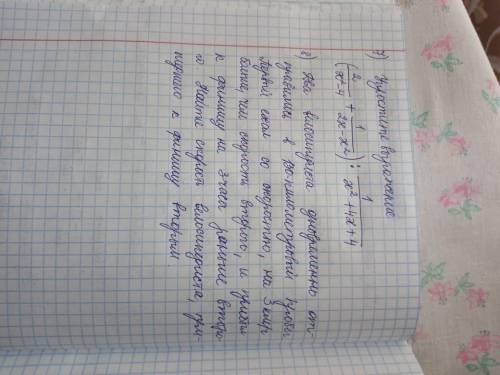 7) Упростите выражение
(2/x²-4 + 1/2x-x²) : 1/x²+4x+4
8) Два велосипедиста одновременно от-
правились в 88-километровый пробег
Первый ехал со скоростью, на 3 км/ч
больше, чем скорость второго, и прибыл
к финишу на 3 часа раньше второ-
го Найти скорость велосипедиста, при-
шедшего к финишу вторым